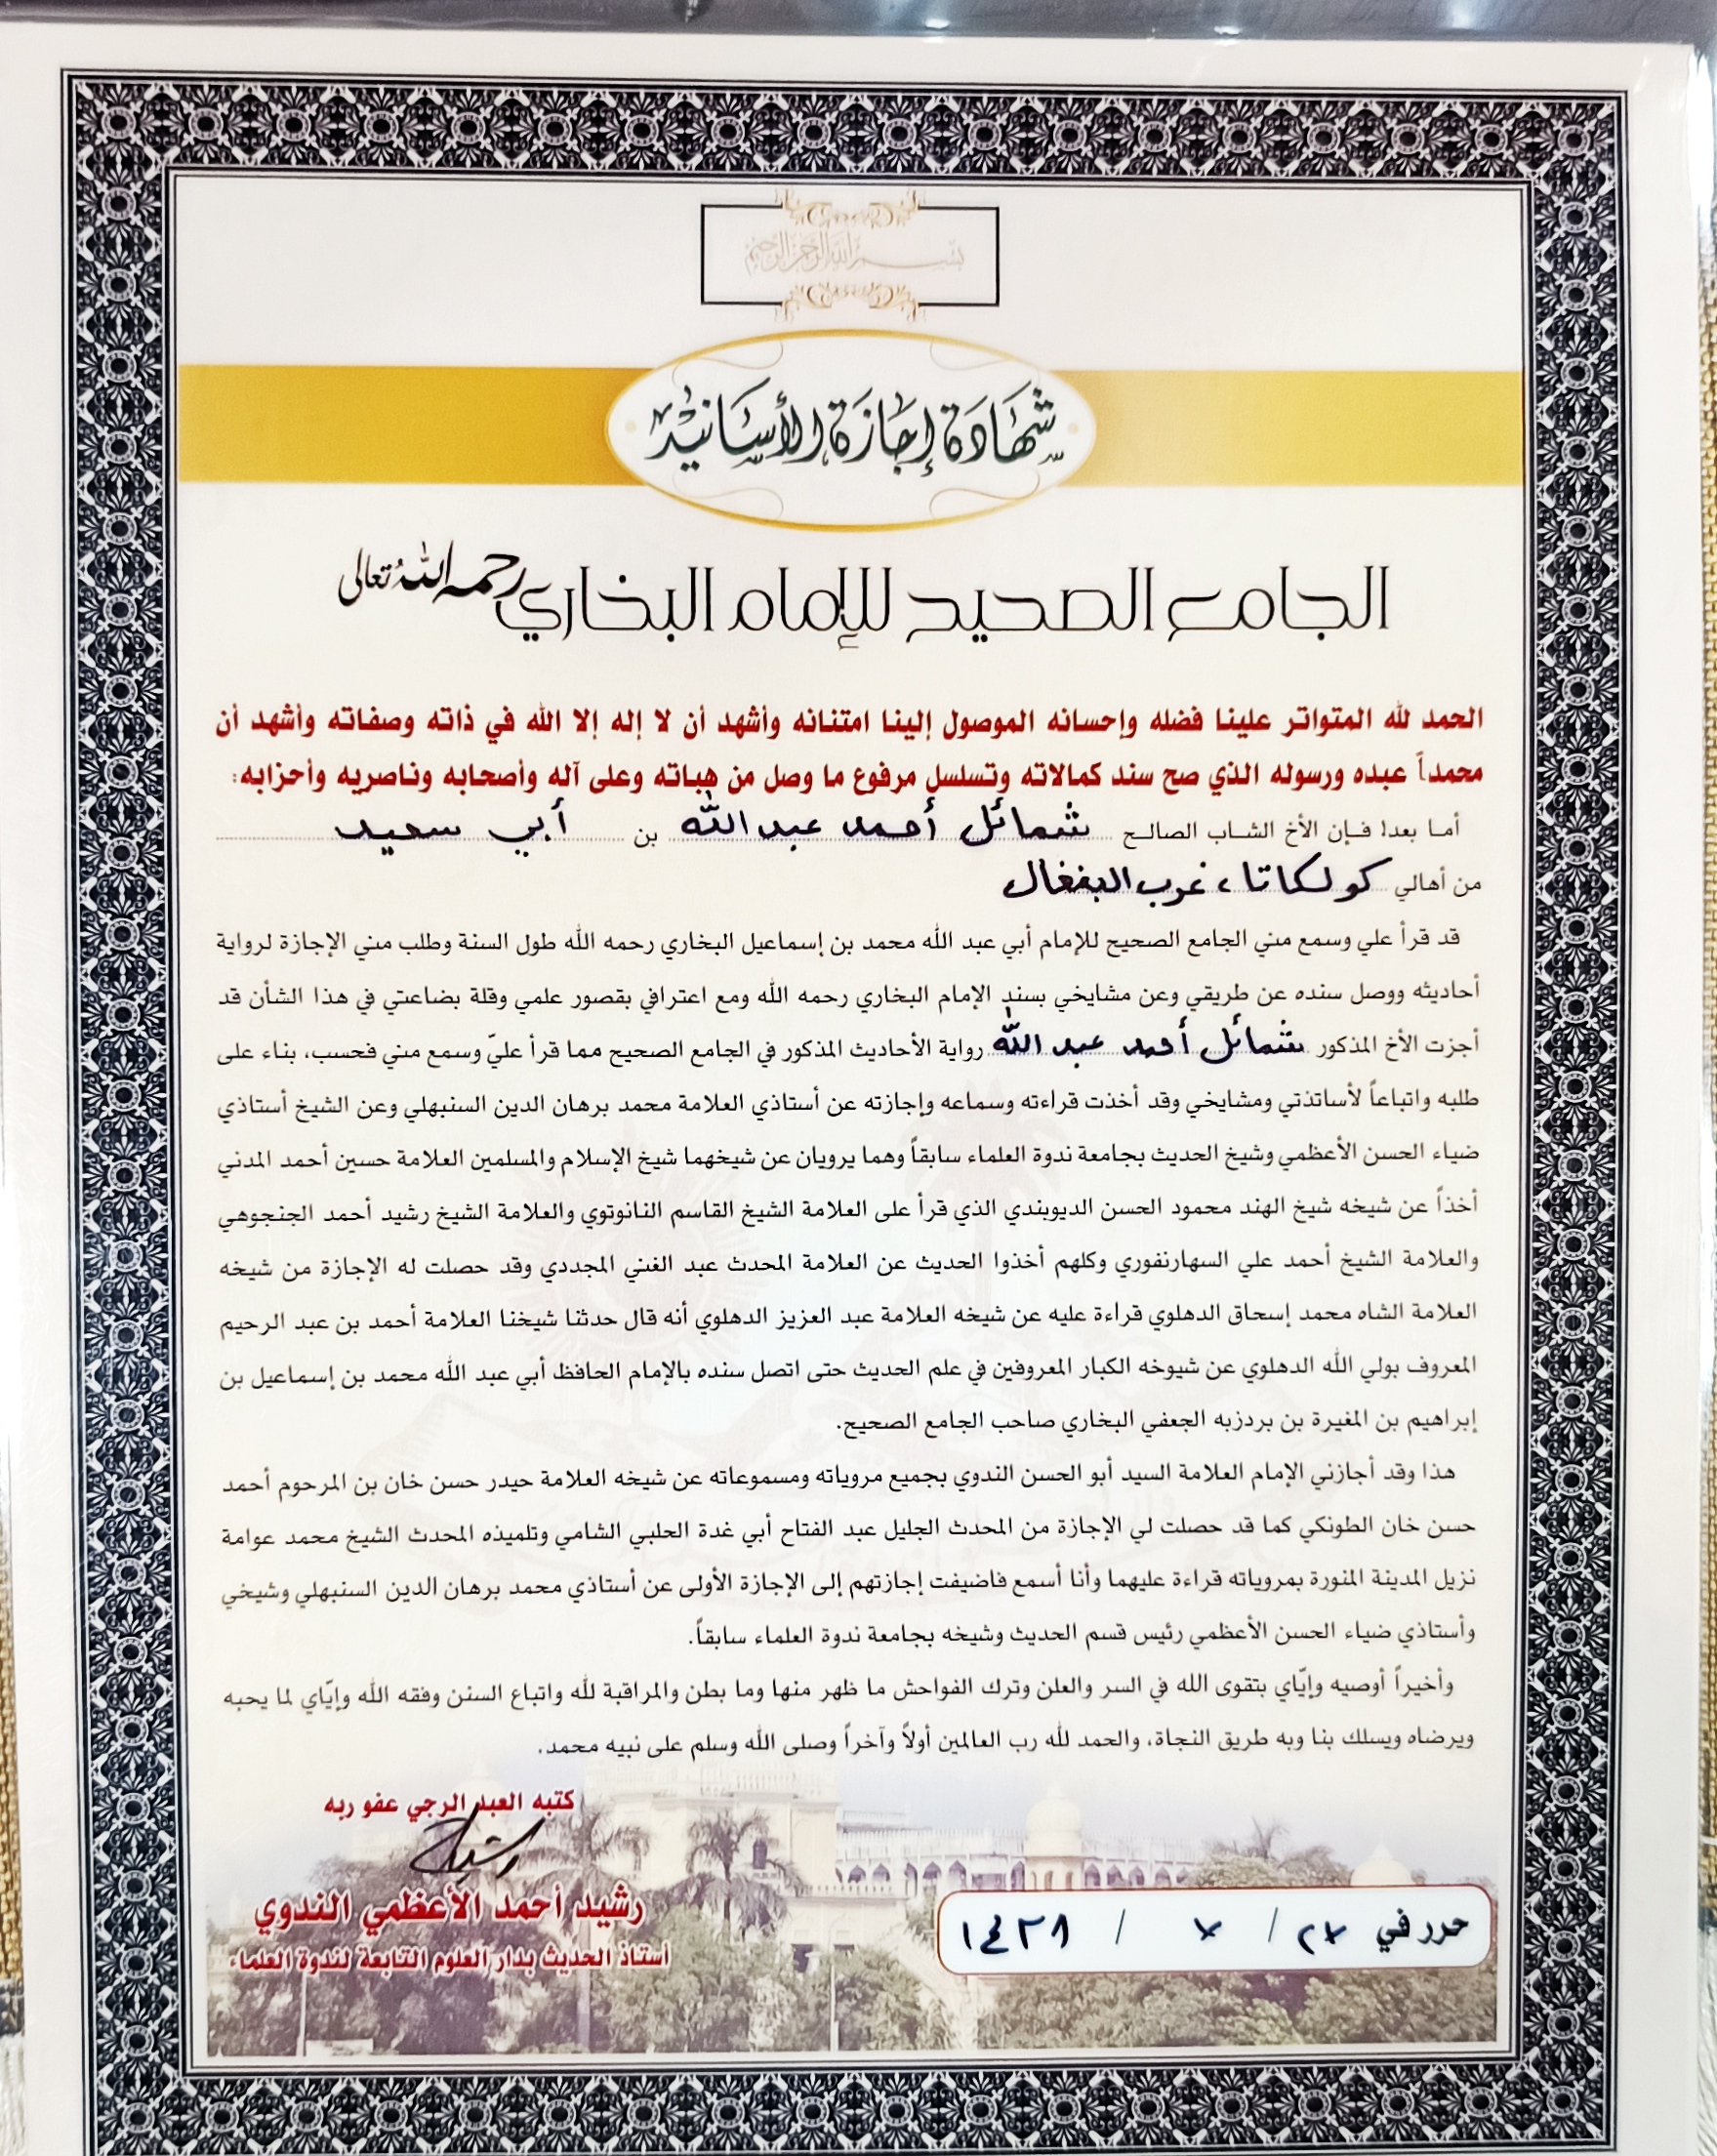 بسم الله الرحمن الرحيم
شهادة إجازة الأسانيد
الجامع الصحيح للإمام البخاري رحمه الله تعالى
الحمد لله المتواتر علينا فضله وإحسانه الموصول إلينا امتنانه وأشهد أن لا إله إلا الله في ذاته وصفاته وأشهد أن
محمداً عبده ورسوله الذي صح سند كمالاته وتسلسل مرفوع ما وصل من هباته وعلى آله وأصحابه وناصريه وأحزابه:
أما بعد! فإن الأخ الشاب الصالح شمائل أحمد عبد الله بن أبي سعيد
من أهالي كولكاتا، غرب البنغال
قد قرأ علي وسمع مني الجامع الصحيح للإمام أبي عبد الله محمد بن إسماعيل البخاري رحمه الله طول السنة وطلب مني الإجازة لرواية
أحاديثه ووصل سنده عن طريقي وعن مشايخي بسند الإمام البخاري رحمه الله ومع اعترافي بقصور علمي وقلة بضاعتي في هذا الشأن قد
أجزت الأخ المذكور شمائل أحمد عبد الله رواية الأحاديث المذكور في الجامع الصحيح مما قرأ عليّ وسمع مني فحسب، بناء على
طلبه واتباعاً لأساتذتي ومشايخي وقد أخذت قراءته وسماعه وإجازته عن أستاذي العلامة محمد برهان الدين السنبهلي وعن الشيخ أستاذي
ضياء الحسن الأعظمي وشيخ الحديث بجامعة ندوة العلماء سابقاً وهما يرويان عن شيخهما شيخ الإسلام والمسلمين العلامة حسين أحمد المدني
أخذاً عن شيخه شيخ الهند محمود الحسن الديوبندي الذي قرأ على العلامة الشيخ القاسم النانوتوي والعلامة الشيخ رشيد أحمد الجنجوهي
والعلامة الشيخ أحمد علي السهارنفوري وكلهم أخذوا الحديث عن العلامة المحدث عبد الغني المجددي وقد حصلت له الإجازة من شيخه
العلامة الشاه محمد إسحاق الدهلوي قراءة عليه عن شيخه العلامة عبد العزيز الدهلوي أنه قال حدثنا شيخنا العلامة أحمد بن عبد الرحيم
المعروف بولي الله الدهلوي عن شيوخه الكبار المعروفين في علم الحديث حتى اتصل سنده بالإمام الحافظ أبي عبد الله محمد بن إسماعيل بن
إبراهيم بن المغيرة بن بردزبه الجعفي البخاري صاحب الجامع الصحيح.
هذا وقد أجازني الإمام العلامة السيد أبو الحسن الندوي بجميع مروياته ومسموعاته عن شيخه العلامة حيدر حسن خان بن المرحوم أحمد
حسن خان الطونكي كما قد حصلت لي الإجازة من المحدث الجليل عبد الفتاح أبي غدة الحلبي الشامي وتلميذه المحدث الشيخ محمد عوامة
نزيل المدينة المنورة بمروياته قراءة عليهما وأنا أسمع فاضيفت إجازتهم إلى الإجازة الأولى عن أستاذي محمد برهان الدين السنبهلي وشيخي
وأستاذي ضياء الحسن الأعظمي رئيس قسم الحديث وشيخه بجامعة ندوة العلماء سابقاً.
وأخيراً أوصيه وإيّاي بتقوى الله في السر والعلن وترك الفواحش ما ظهر منها وما بطن والمراقبة لله واتباع السنن وفقه الله وإيّاي لما يحبه
ويرضاه ويسلك بنا وبه طريق النجاة، والحمد لله رب العالمين أولاً وآخراً وصلى الله وسلم على نبيه محمد.
كتبه العبد الرجي عفو ربه
رشيد
رشيد أحمد الأعظمي الندوي
أستاذ الحديث بدار العلوم التابعة لندوة العلماء
حرر في / /